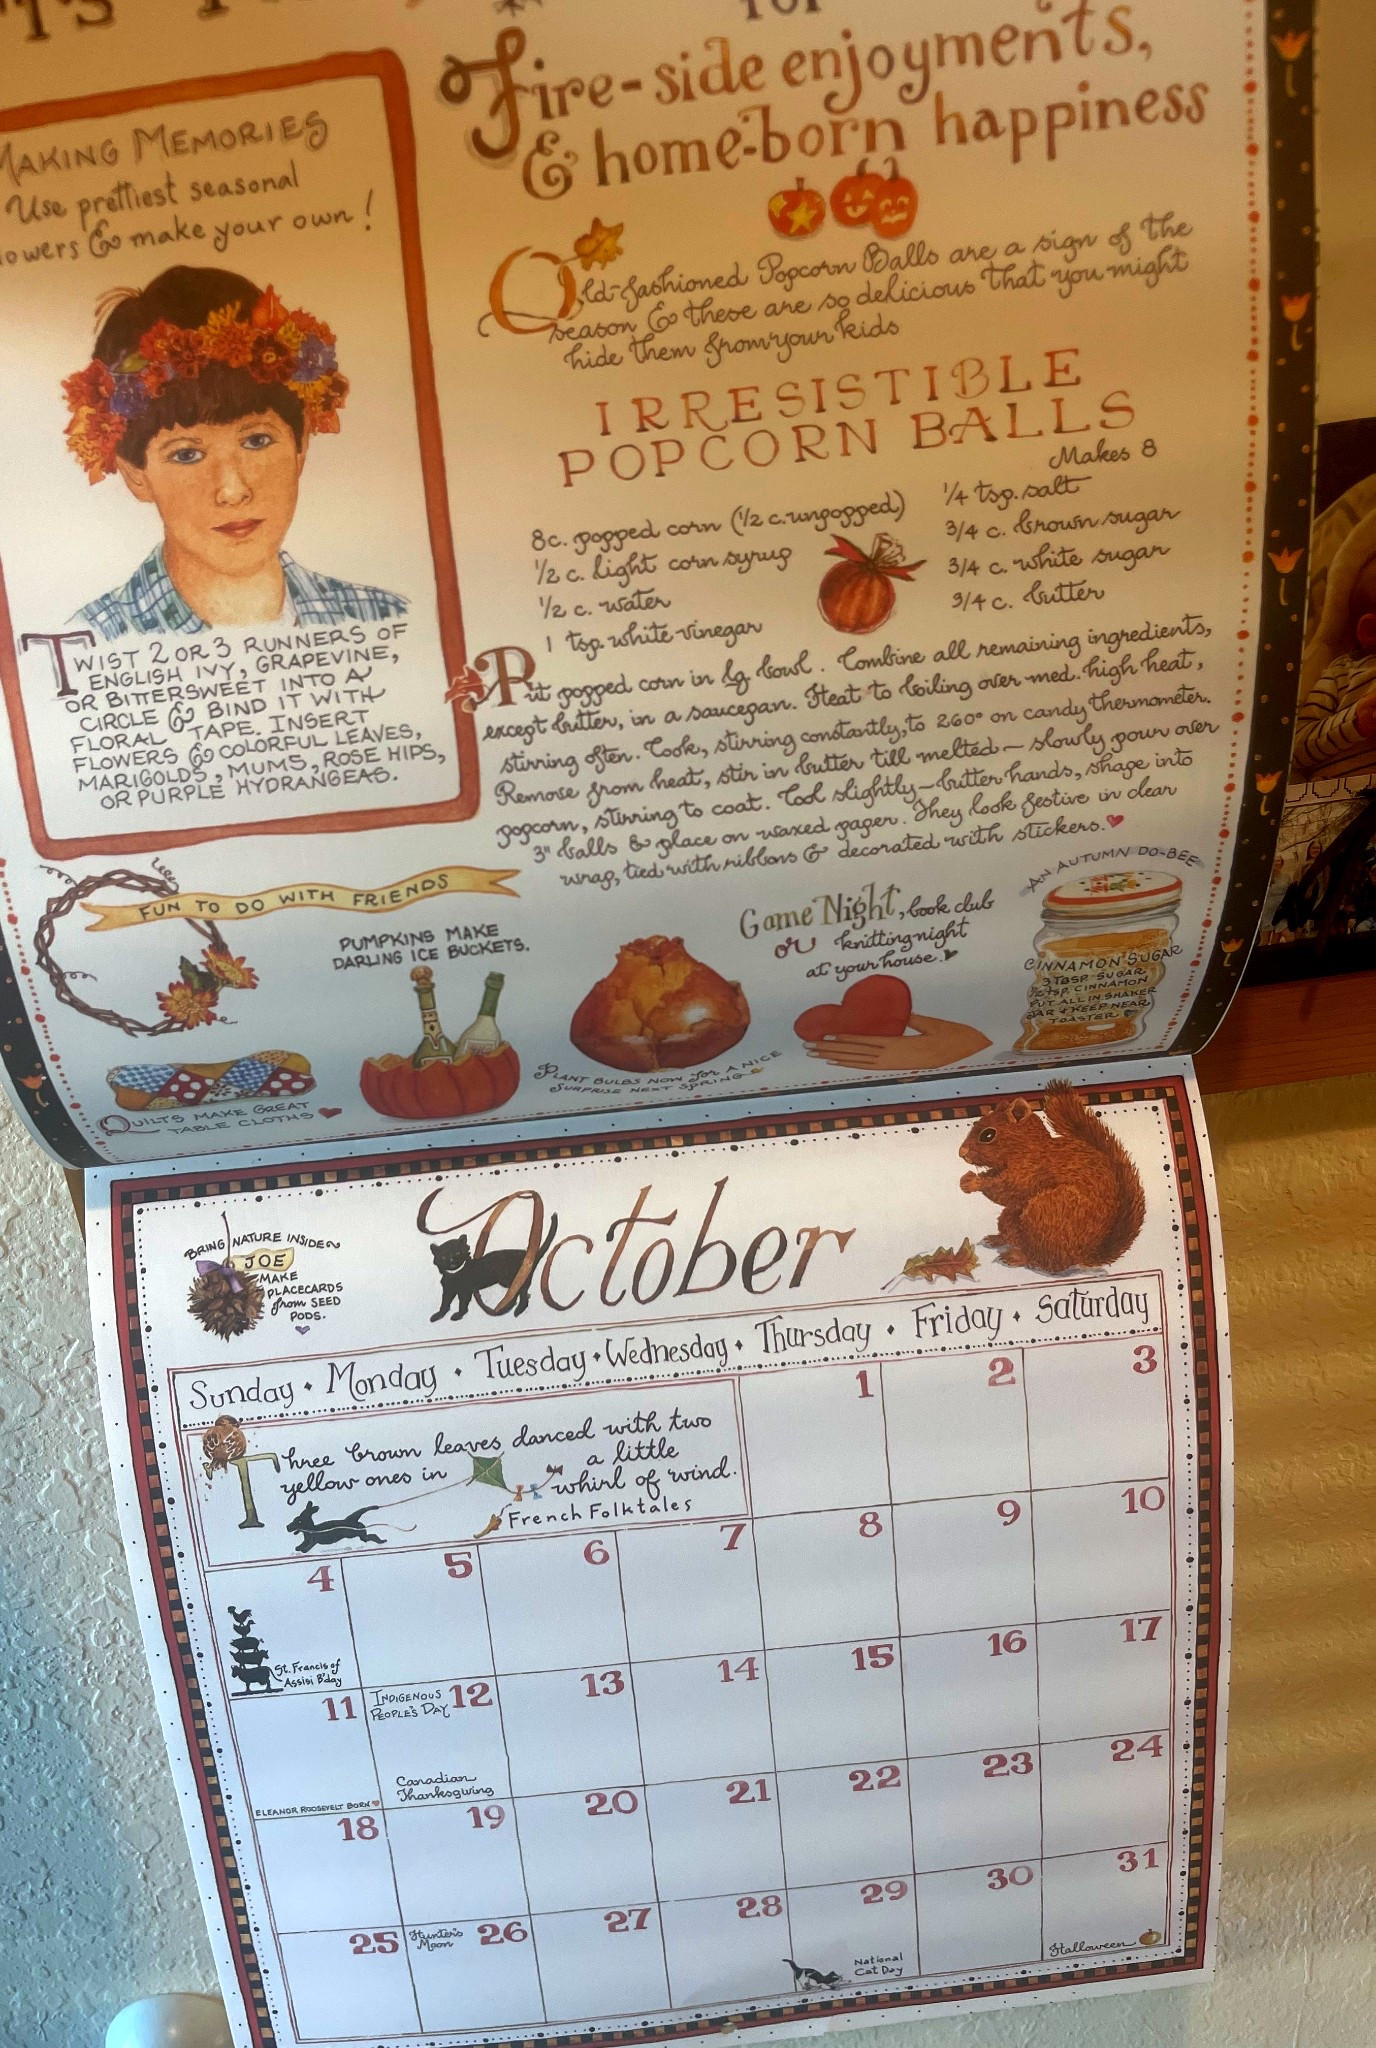 for
Fire-side enjoyments,
& home-born happiness
MAKING MEMORIES
Use prettiest seasonal
flowers & make your own!
TWIST 2 OR 3 RUNNERS OF
ENGLISH IVY, GRAPEVINE,
OR BITTERSWEET INTO A
CIRCLE & BIND IT WITH
FLORAL TAPE. INSERT
FLOWERS & COLORFUL LEAVES,
MARIGOLDS, MUMS, ROSE HIPS,
OR PURPLE HYDRANGEAS.
Old-fashioned Popcorn Balls are a sign of the
season & these are so delicious that you might
hide them from your kids
IRRESISTIBLE
POPCORN BALLS
Makes 8
8 c. popped corn (1/2 c. unpopped)
1/2 c. light corn syrup
1/2 c. water
1 tsp. white vinegar
1/4 tsp. salt
3/4 c. brown sugar
3/4 c. white sugar
3/4 c. butter
Put popped corn in lg. bowl. Combine all remaining ingredients,
except butter, in a saucepan. Heat to boiling over med. high heat,
stirring often. Cook, stirring constantly, to 260° on candy thermometer.
Remove from heat, stir in butter till melted – slowly pour over
popcorn, stirring to coat. Cool slightly – butter hands, shape into
3" balls & place on waxed paper. They look festive in clear
wrap, tied with ribbons & decorated with stickers.
FUN TO DO WITH FRIENDS
PUMPKINS MAKE
DARLING ICE BUCKETS.
Game Night, book club
or knitting night
at your house.
AN AUTUMN DO-BEE
CINNAMON SUGAR
3 TBSP. SUGAR
CINNAMON
PUT ALL IN SHAKER
JAR & KEEP NEAR
TOASTER
QUILTS MAKE GREAT
TABLE CLOTHS
PLANT BULBS NOW for A NICE
SURPRISE NEXT SPRING
BRING NATURE INSIDE~
JOE
MAKE
PLACECARDS
from SEED
PODS.
October
Sunday • Monday • Tuesday • Wednesday • Thursday • Friday • Saturday
Three brown leaves danced with two
yellow ones in a little
whirl of wind.
French Folktales
1 2 3
4 5 6 7 8 9 10
St. Francis of
Assisi B'day
11 12 13 14 15 16 17
INDIGENOUS
PEOPLE'S DAY
Canadian
Thanksgiving
ELEANOR ROOSEVELT BORN
18 19 20 21 22 23 24
25 26 27 28 29 30 31
Hunter's
Moon
National
Cat Day
Halloween